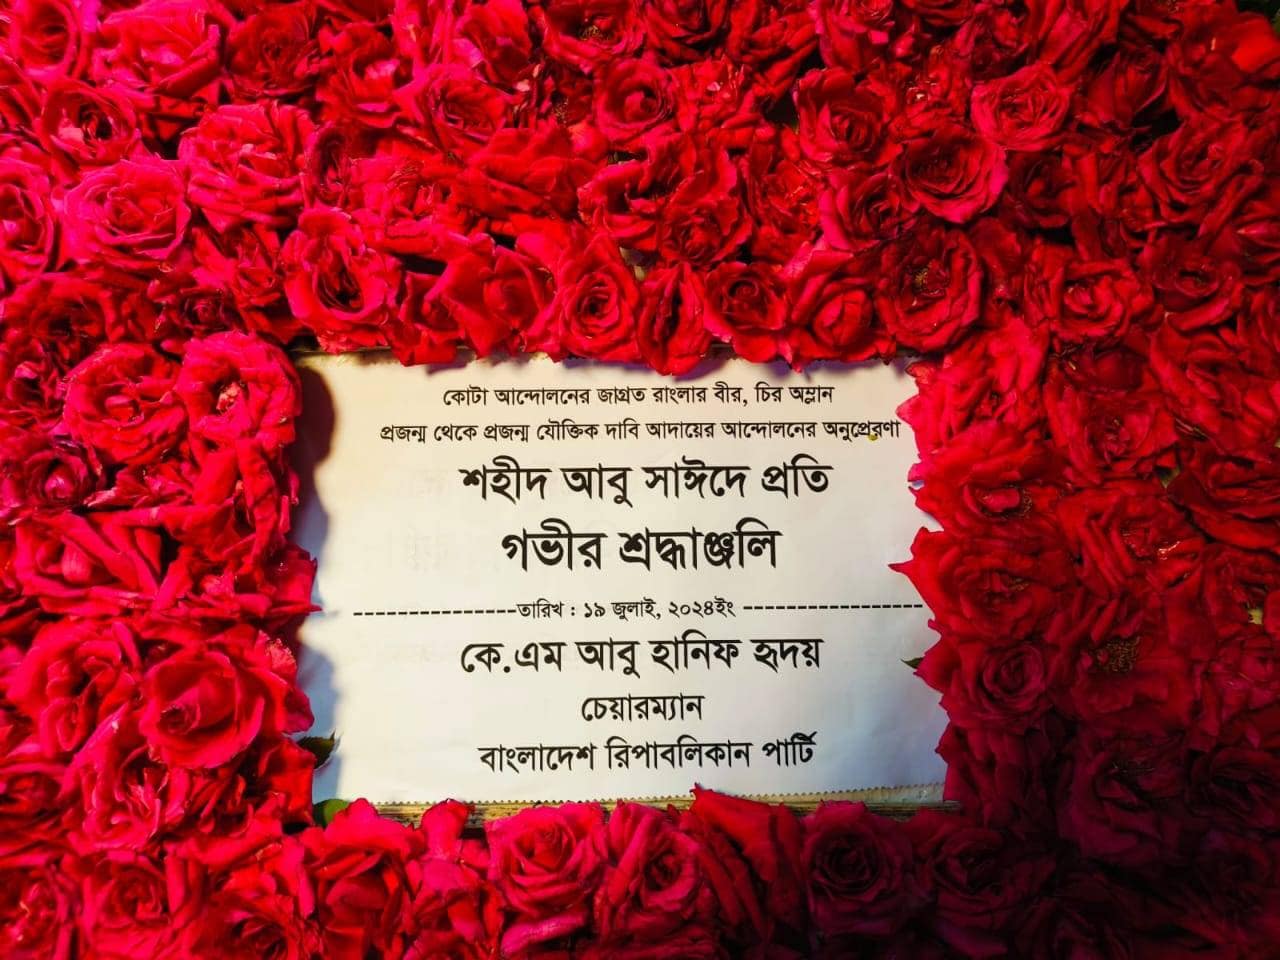 কোটা আন্দোলনের জাগ্রত বাংলার বীর, চির অম্লান
প্রজন্ম থেকে প্রজন্ম যৌক্তিক দাবি আদায়ের আন্দোলনের অনুপ্রেরণা
শহীদ আবু সাঈদে প্রতি
গভীর শ্রদ্ধাঞ্জলি
----------------তারিখ : ১৯ জুলাই, ২০২৪ইং ------------------
কে.এম আবু হানিফ হৃদয়
চেয়ারম্যান
বাংলাদেশ রিপাবলিকান পার্টি